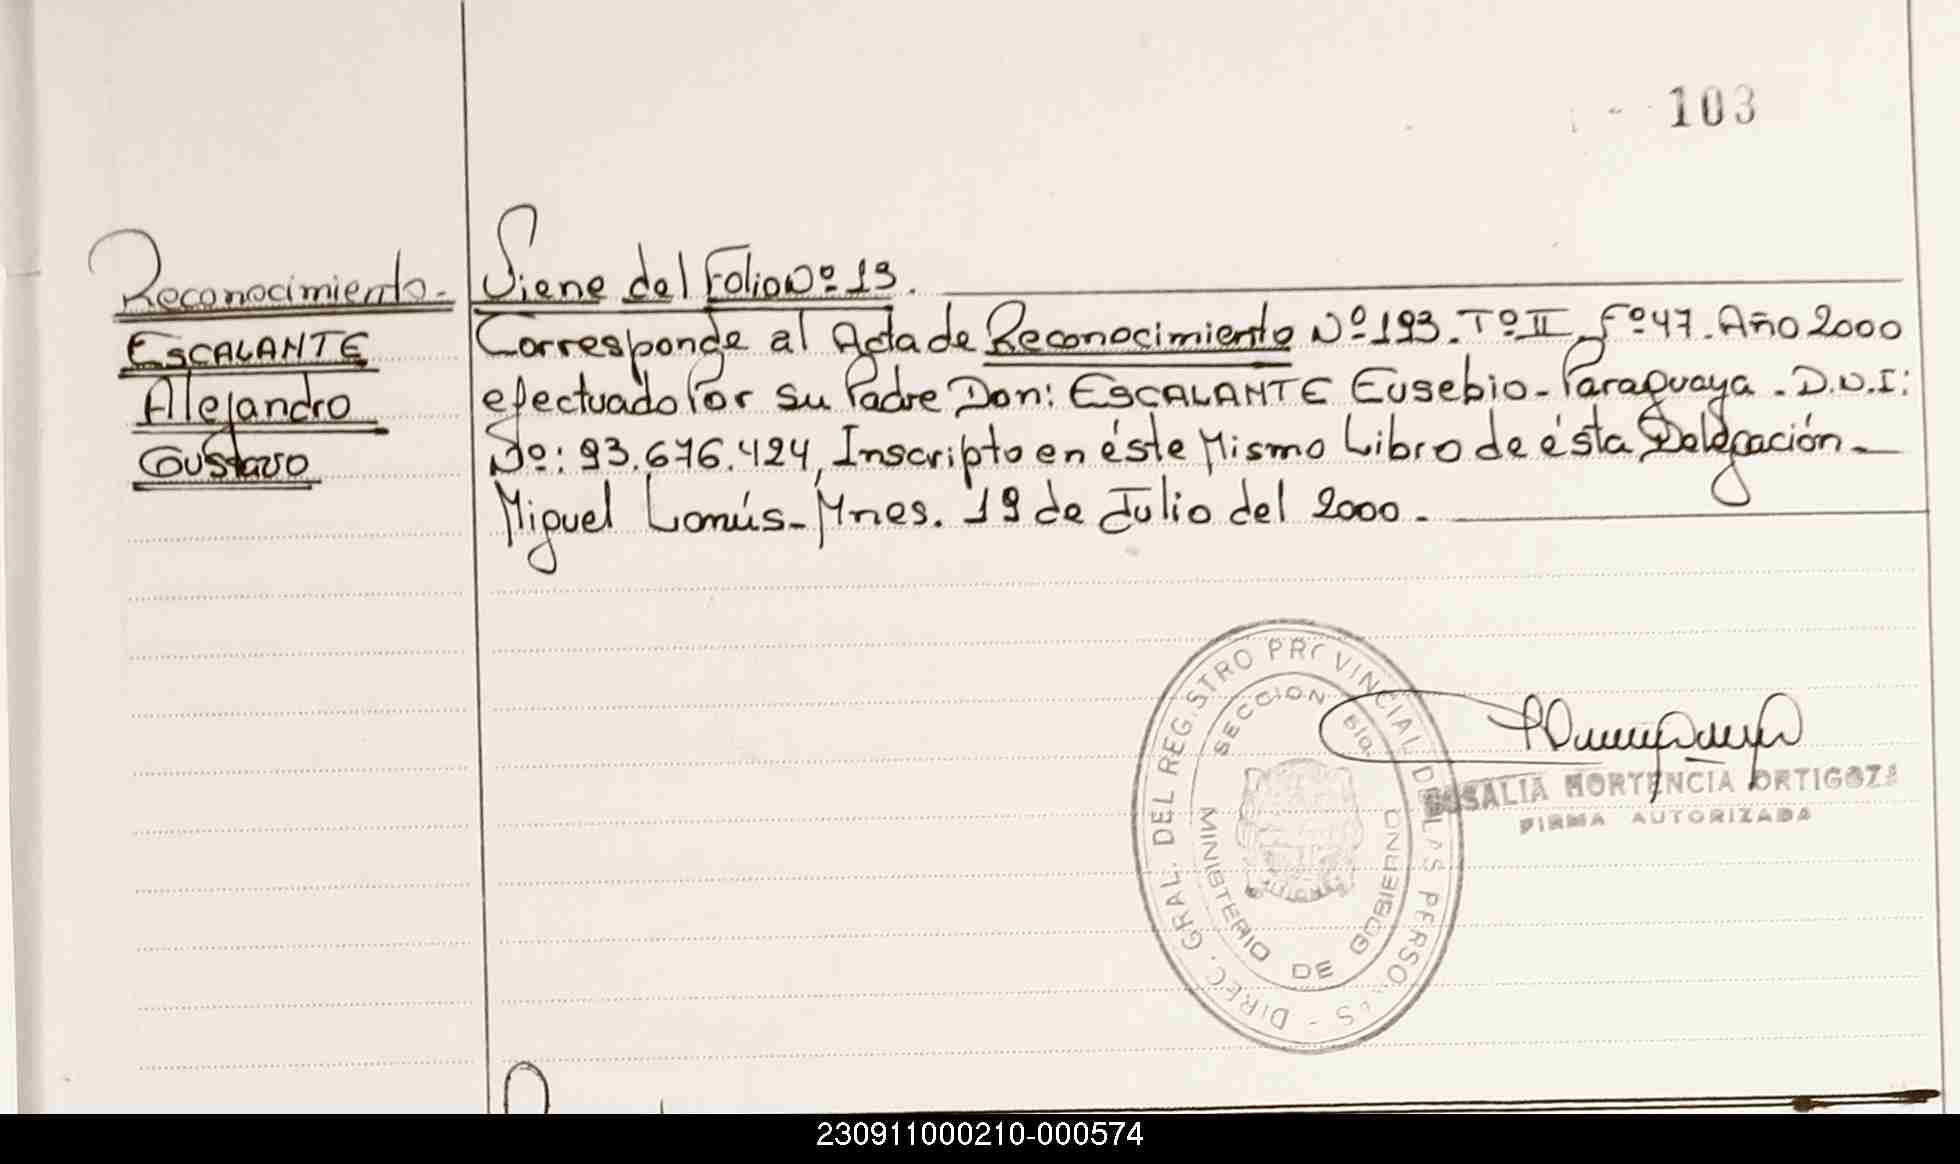 103
Reconocimiento.
ESCALANTE
Alejandro
Gustavo
Viene del Folio Nº 19.
Corresponde al Acta de Reconocimiento Nº 193. Tº II Fº 47. Año 2000
efectuado Por su Padre Don: ESCALANTE Eusebio - Paraguaya - D.N.I:
Nº: 93.676.424, Inscripto en éste Mismo Libro de ésta Delegación -
Miguel Lanús - Mnes. 19 de Julio del 2000.
DIREC. GRAL. DEL REG.STRO PROVINCIAL DE LAS PERSONAS -
SECCION
MINISTERIO DE GOBIERNO
ROSALIA HORTENCIA ORTIGOZA
FIRMA AUTORIZADA
230911000210-000574